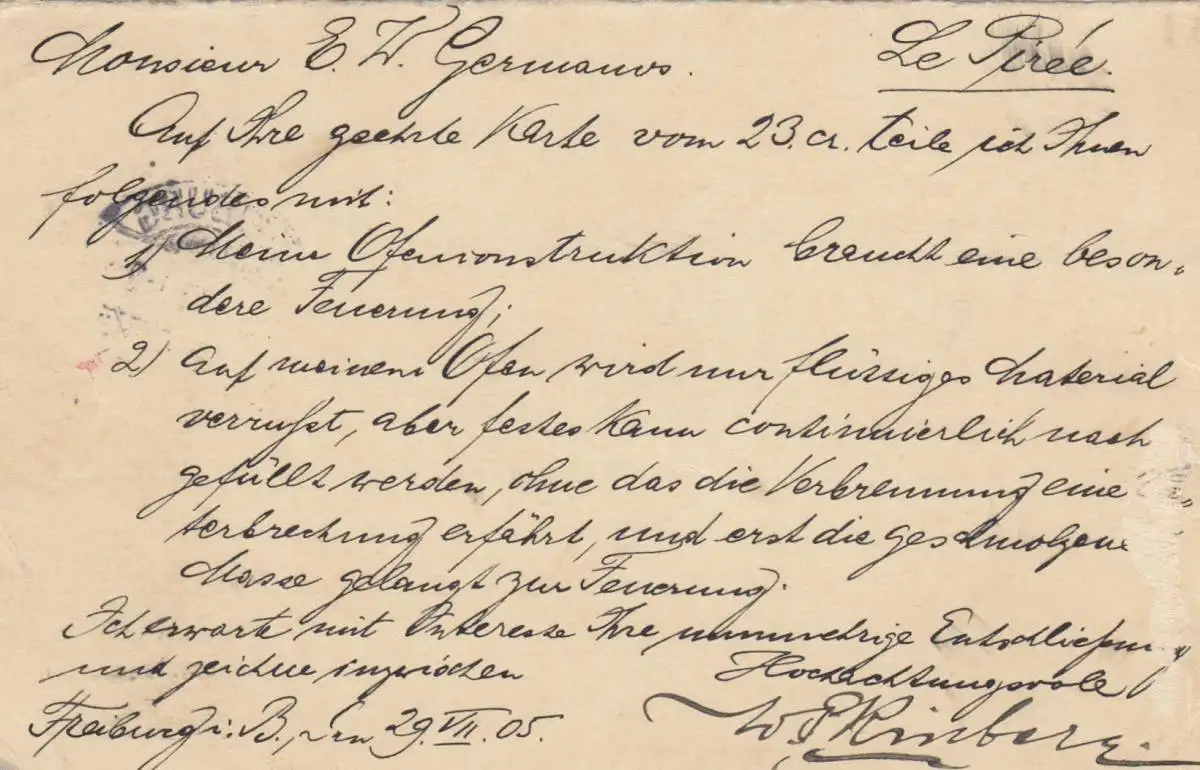 Monsieur E. W. Germanos. Le Pirée.
Auf Ihre geehrte Karte vom 23. cr. teile ich Ihnen
folgendes mit:
1) Meine Ofenconstruktion braucht eine beson-
dere Feuerung;
2) Auf meinem Ofen wird nur flüssiges Material
verrußt, aber festes kann continuierlich nach
gefüllt werden, ohne das die Verbrennung eine
terbrechung erfährt, und erst die geschmolzene
Masse gelangt zur Feuerung.
Ich erwarte mit Interesse Ihre nunmehrige Entschließung
und zeichne inzwischen Hochachtungsvoll
Freiburg i. B., den 29. VII. 05.